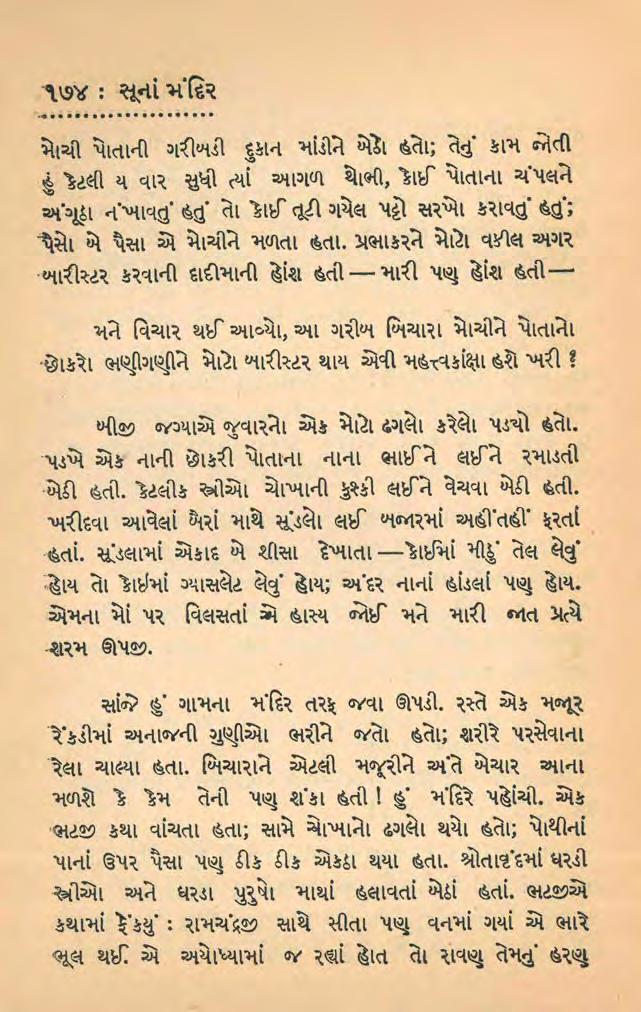 ૧૭૪ : સૂનાં મંદિર
મોચી પોતાની ગરીબડી દુકાન માંડીને બેઠો હતો; તેનું કામ જોતી
હું કેટલી ય વાર સુધી ત્યાં આગળ થોભી, કોઈ પોતાના ચંપલને
અંગૂઠા નંખાવતું હતું તો કોઈ તૂટી ગયેલ પટ્ટો સરખો કરાવતું હતું;
પૈસો બે પૈસા એ મોચીને મળતા હતા. પ્રભાકરને મોટો વકીલ અગર
બારીસ્ટર કરવાની દાદીમાની હોંશ હતી — મારી પણ હોંશ હતી —
મને વિચાર થઈ આવ્યો, આ ગરીબ બિચારા મોચીને પોતાનો
છોકરો ભણીગણીને મોટો બારીસ્ટર થાય એવી મહત્ત્વકાંક્ષા હશે ખરી ?
બીજી જગ્યાએ જુવારનો એક મોટો ઢગલો કરેલો પડ્યો હતો.
પડખે એક નાની છોકરી પોતાના નાના ભાઈને લઈને રમાડતી
બેઠી હતી. કેટલીક સ્ત્રીઓ ચોખાની કુશ્કી લઈને વેચવા બેઠી હતી.
ખરીદવા આવેલાં બૈરાં માથે સૂંડલો લઈ બજારમાં અહીંતહીં ફરતાં
હતાં. સૂંડલામાં એકાદ બે શીસા દેખાતા — કોઈમાં મીઠું તેલ લેવું
હોય તો કોઈમાં ગ્યાસલેટ લેવું હોય; અંદર નાનાં હાંડલાં પણ હોય.
એમના મોં પર વિલસતાં એ હાસ્ય જોઈ મને મારી જાત પ્રત્યે
શરમ ઊપજી.
સાંજે હું ગામના મંદિર તરફ જવા ઊપડી. રસ્તે એક મજૂર
રેંકડીમાં અનાજની ગુણીઓ ભરીને જતો હતો; શરીરે પરસેવાના
રેલા ચાલ્યા હતા. બિચારાને એટલી મજૂરીને અંતે બેચાર આના
મળશે કે કેમ તેની પણ શંકા હતી ! હું મંદિરે પહોંચી. એક
ભટજી કથા વાંચતા હતા; સામે ચોખાનો ઢગલો થયો હતો; પોથીનાં
પાનાં ઉપર પૈસા પણ ઠીક ઠીક એકઠા થયા હતા. શ્રોતાવૃંદમાં ઘરડી
સ્ત્રીઓ અને ઘરડા પુરુષો માથાં હલાવતાં બેઠાં હતાં. ભટજીએ
કથામાં ફેંકયું : રામચંદ્રજી સાથે સીતા પણ વનમાં ગયાં એ ભારે
ભૂલ થઈ. એ અયોધ્યામાં જ રહ્યાં હોત તો રાવણ તેમનું હરણ